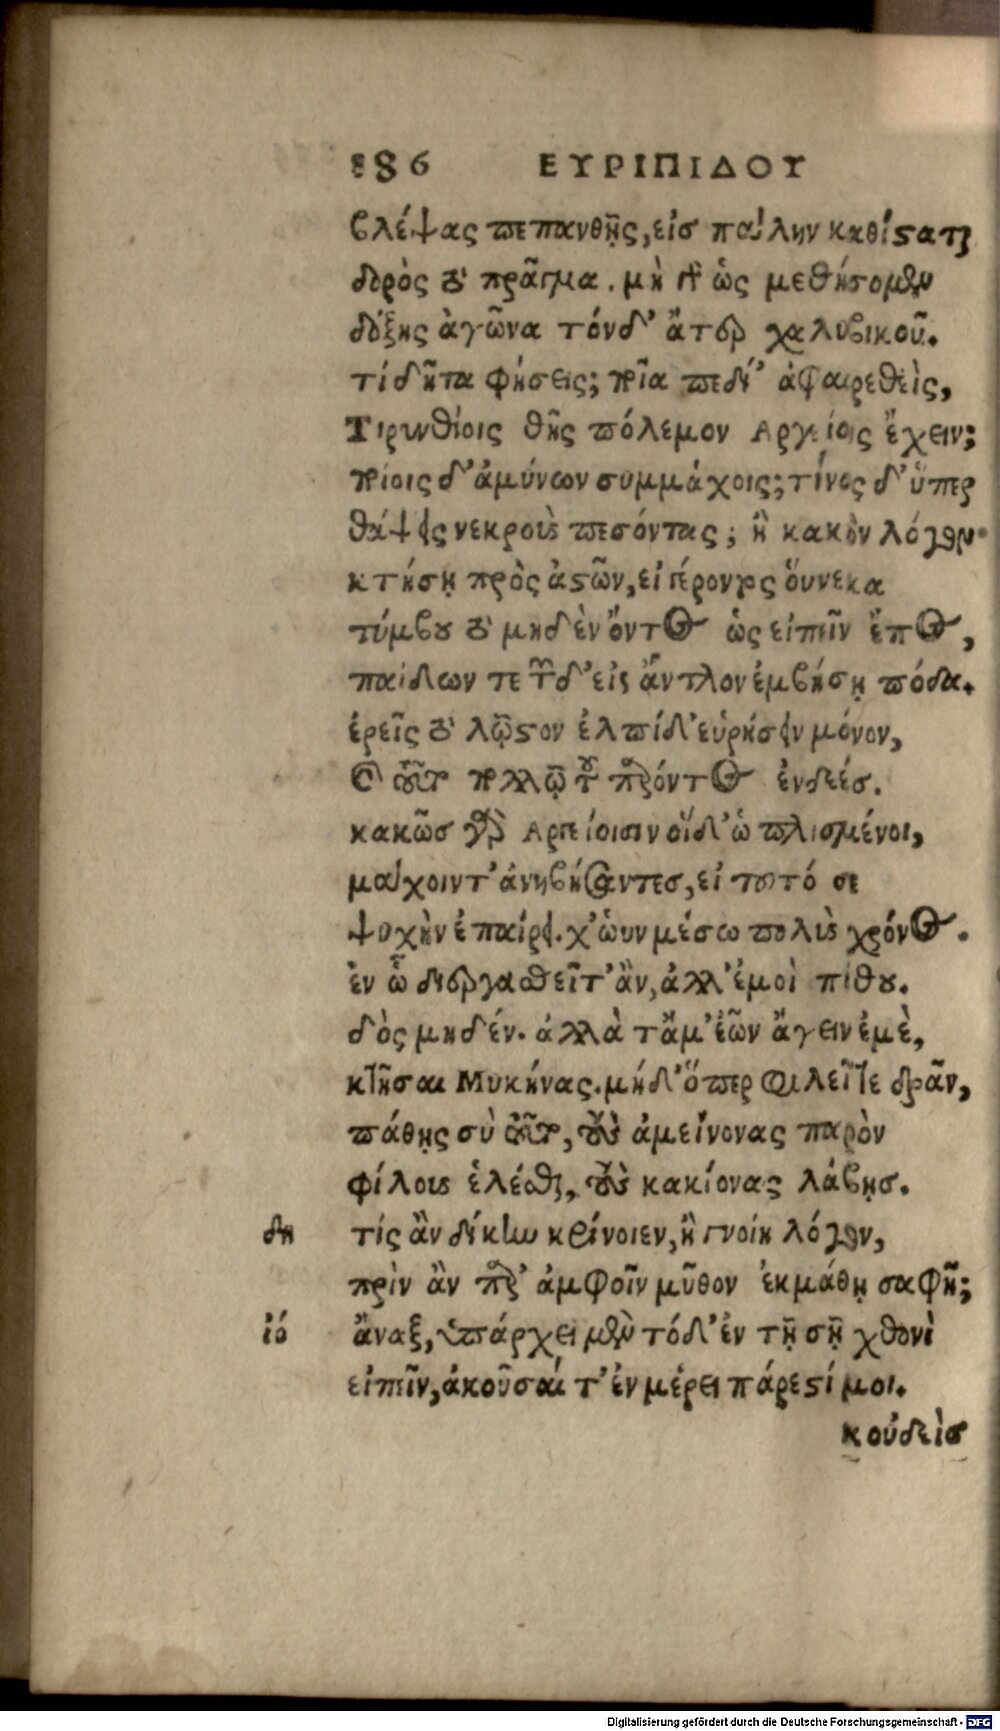 886 ΕΥΡΙΠΙΔΟΥ
βλέψας πεπανθῇς, εἰς πάλην καθίσταται
δορὸς τὸ πρᾶγμα. μὴ γὰρ ὡς μεθήσομεν
δόξης ἀγῶνα τόνδ' ἄτερ χαλυβικοῦ.
τί δῆτα φήσεις; ποῖα πεδί' ἀφαιρεθεὶς,
Τιρυνθίοις θῇς πόλεμον Αργείοις ἔχειν;
ποίοις δ' ἀμύνων συμμάχοις; τίνος δ' ὕπερ
θάψεις νεκροὺς πεσόντας; ἢ κακὸν λόγον
κτήσῃ πρὸς ἀστῶν, εἰ γέροντος οὕνεκα
τύμβου τὸ μηδὲν ὄντος ὡς εἰπεῖν ἔπος,
παίδων τε τῶνδ' εἰς ἄντλον ἐμβήσῃ πόδα.
ἐρεῖς τὸ λῷστον ἐλπίδ' εὑρήσειν μόνον,
καὶ τοῦτο πολλῷ τοῦ παρόντος ἐνδεές.
κακῶς γὰρ Αργείοισιν οἵδ' ὡπλισμένοι,
μάχοιντ' ἀνηβήσαντες, εἰ τοῦτό σε
ψυχὴν ἐπαίρει. χ' ὠυν μέσω πολὺς χρόνος.
ἐν ᾧ διεργασθεῖτ' ἂν, ἀλλ' ἐμοὶ πιθοῦ.
δὸς μηδέν. ἀλλὰ τἄμ' ἐῶν ἄγειν ἐμὲ,
κτῆσαι Μυκήνας. μήδ' ὅπερ φιλεῖτε δρᾶν,
πάθῃς σὺ τοῦτο, τοὺς ἀμείνονας παρὸν
φίλους ἑλέσθαι, τοὺς κακίονας λάβῃς.
δη τίς ἂν δίκην κρίνοιεν, ἢ γνοίη λόγον,
πρὶν ἂν παρ' ἀμφοῖν μῦθον ἐκμάθῃ σαφῆ;
ἰό ἄναξ, ὑπάρχει μὲν τόδ' ἐν τῇ σῇ χθονὶ
εἰπεῖν, ἀκοῦσαί τ' ἐν μέρει πάρεστί μοι.
κοὐδεὶς
Digitalisierung gefördert durch die Deutsche Forschungsgemeinschaft - DFG